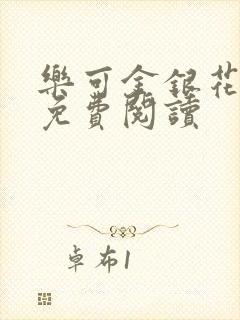 樂可金銀花
免費閱讀
卓布1